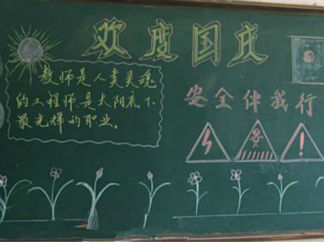 欢度国庆
教师是人类灵魂
的工程师,是太阳底下
最光辉的职业。
安全伴我行